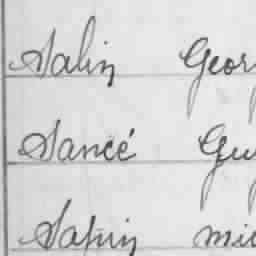 Salin Geor
Sancé Guy
Sapin mic